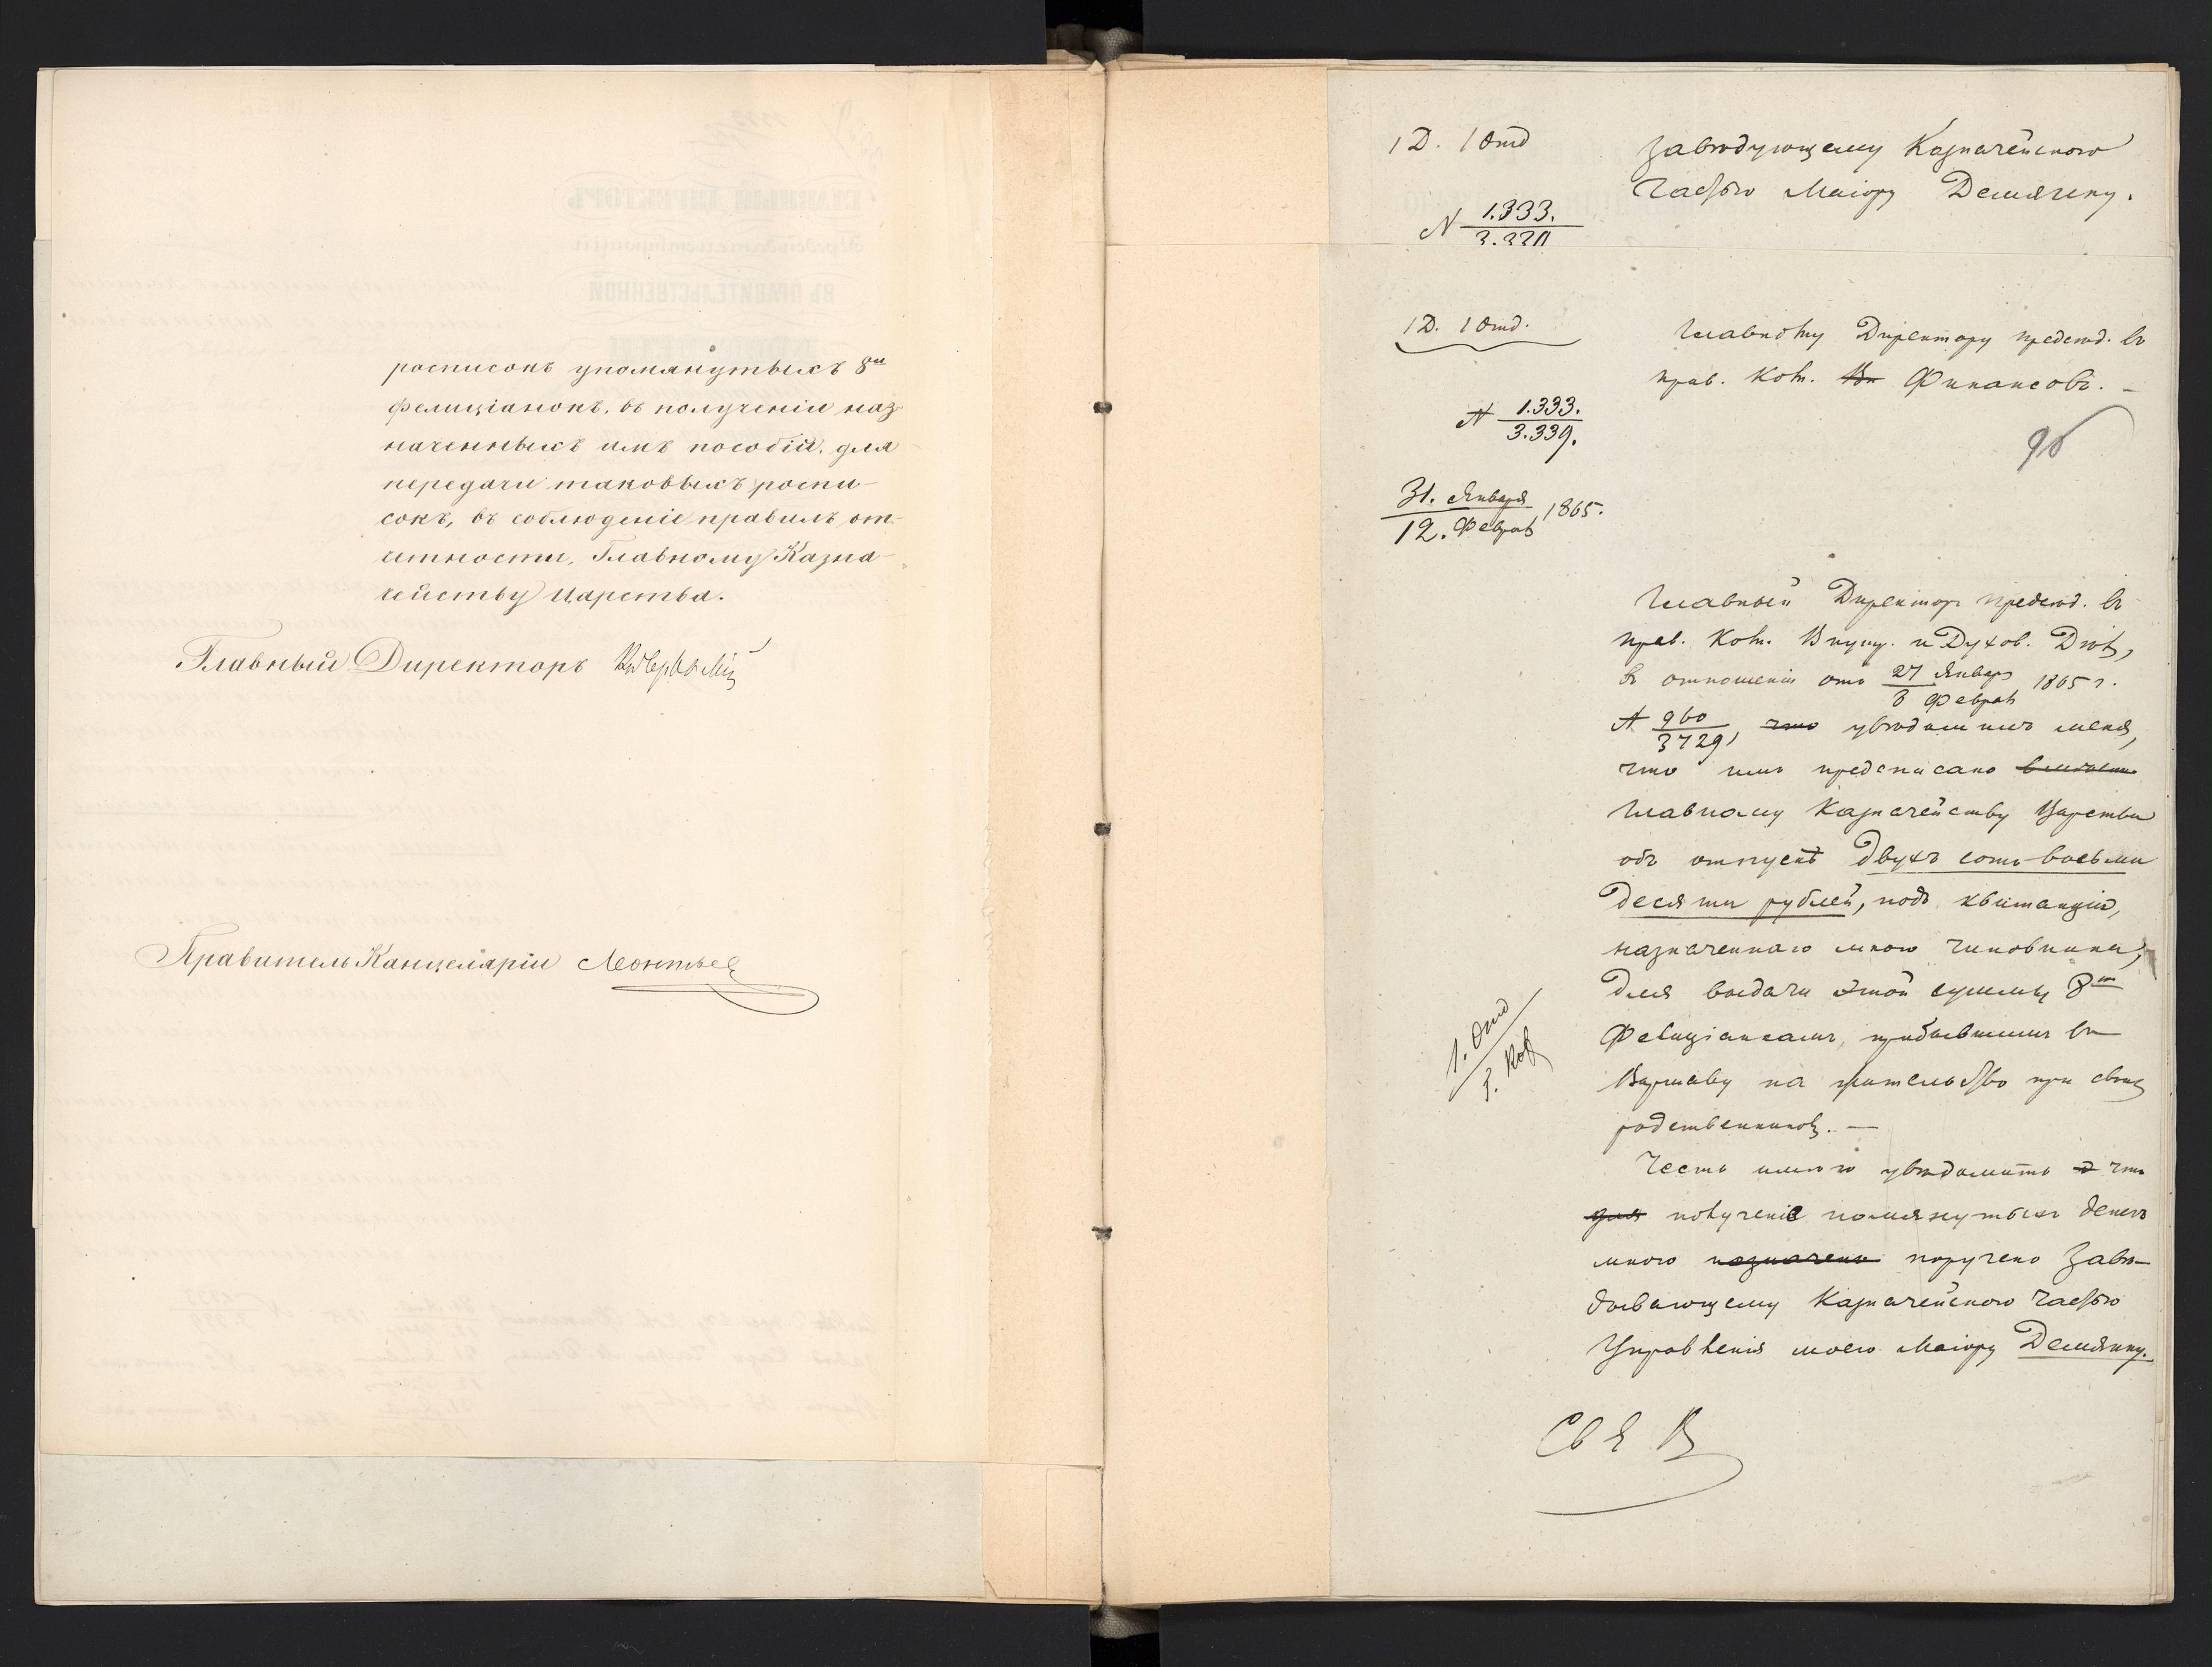 росписокъ упомянутыхъ 8ми
фелиціанокъ, въ полученіи наз-
наченныхъ имъ пособій, для
передачи таковыхъ роспи-
сокъ, въ соблюденіе правилъ от-
четности, Главному Казна-
чейству Царства.
Главный Директоръ
Правитель Канцеляріи Леонтьев
1 Д. 1 Отд
Завѣдующему Казначейскою
Частью Маіору Демячку.
N 1.333.
1 Д. 1 Отд.
Главному Директору предсѣд. въ
прав. Ком. Вн Финансовъ. –
N 1.333.
3.339.
96
31. Января
12. Февраля 1865.
Главный Директоръ предсѣд. въ
прав. Ком. Внутр. и Духов. Дѣлъ,
въ отношеніи отъ 27 Января 1865 г.
8 Февраля
N 960
3729, что увѣдомилъ меня,
что имъ предписано
Главному Казначейству Царства
объ отпускѣ двухъ сотъ восьми
десяти рублей, подъ квитанцію,
назначеннаго мною чиновника,
для выдачи этой суммы 8ми
Фелиціанкамъ, прибывшимъ въ
Варшаву на жительство при своихъ
родственникахъ. —
1. Отд
3.
Честь имѣю увѣдомить что
для полученіе помянутыхъ денегъ
мною назначено поручено Завѣ-
дывающему Казначейскою Частью
Управленія моего Маіору Демячку.